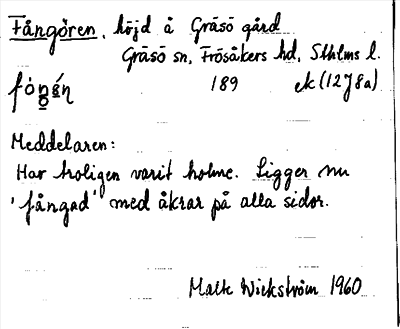 Fångören, höjd å Gräsö gård
Gräsö sn, Frösåkers hd, Sthlms l.
189 ek (12J8a)
Meddelaren:
Har troligen varit holme. Ligger nu
"fångad" med åkrar på alla sidor.
Mats Wickström 1960